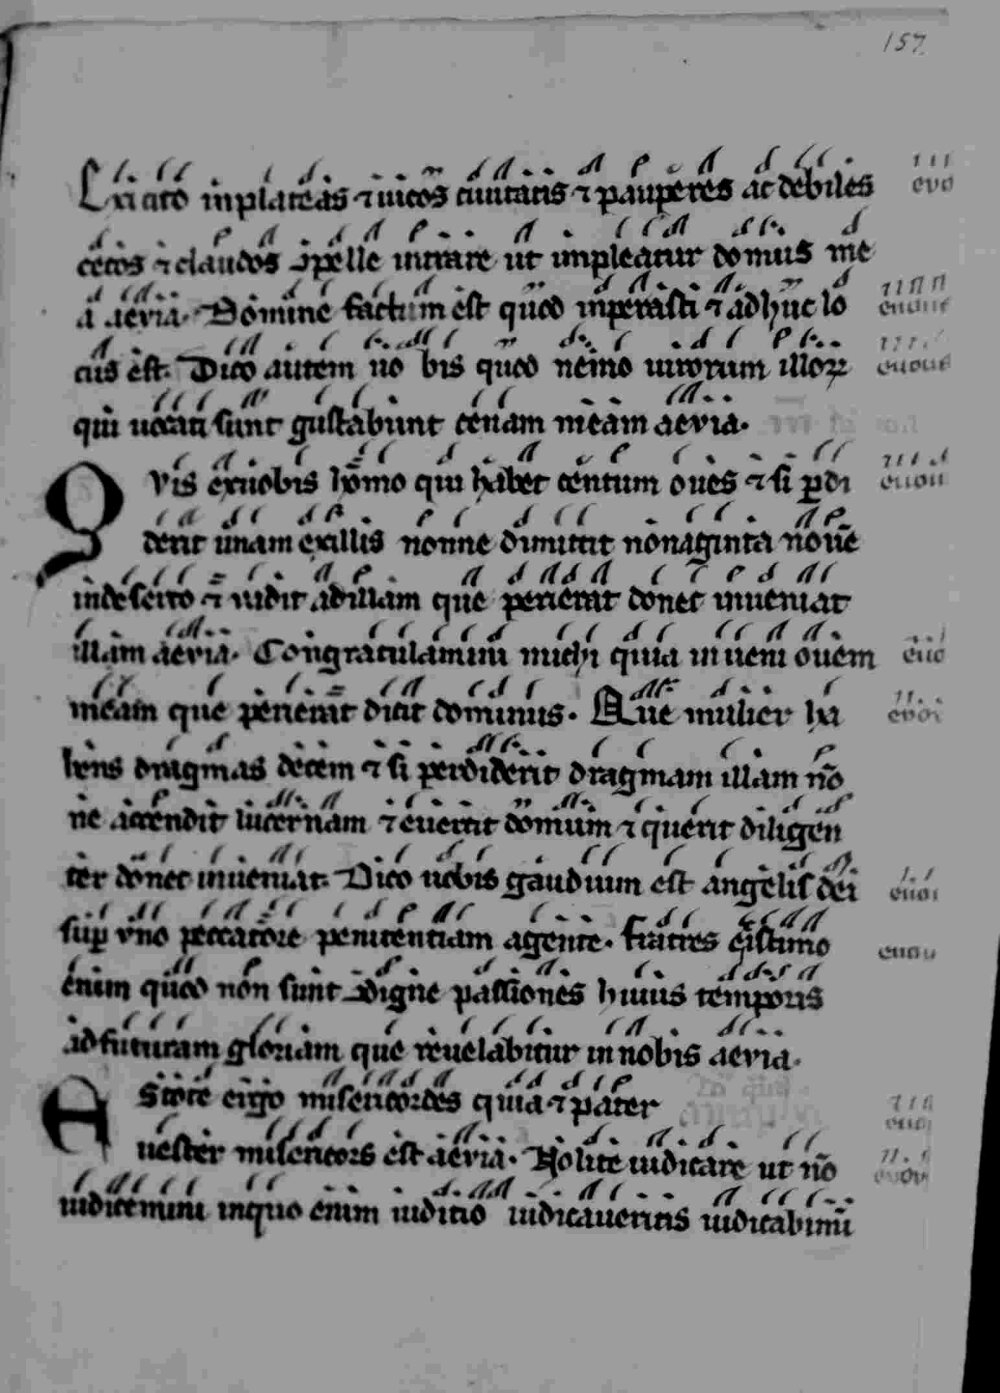 157
Exi cito in plateas ⁊ uicos ciuitatis ⁊ pauperes ac debiles evo
cecos ⁊ claudos ɔpelle intrare ut impleatur domus me
a aevia. Domine factum est quod inperasti ⁊ adhuc lo
cus est. Dico autem uo bis quod nemo uirorum illoꝝ euoue
qui uocati sunt gustabunt cenam meam aevia.
Quis ex uobis homo qui habet centum oues ⁊ si ꝑdi euou
derit unam ex illis nonne dimittit nonaginta nouē
in deserto ⁊ uadit ad illam que perierat donec inueniat
illam aevia. Congratulamini michi quia inueni ouem euo
meam que perierat dicit dominus. Que mulier ha evoi
bens dragmas decem ⁊ si perdiderit dragmam illam nō
ne accendit lucernam ⁊ euertit domum ⁊ querit diligen
ter donec inueniat. Dico uobis gaudium est angelis dei
suꝑ vno peccatore penitentiam agente. Fratres existimo
enim quod non sunt ɔdigne passiones huius temporis
ad futuram gloriam que reuelabitur in nobis aevia.
Estote ergo misericordes quia ⁊ pater
uester misericors est aevia. Nolite iudicare ut nō
iudicemini in quo enim iuditio iudicaueritis iudicabimī